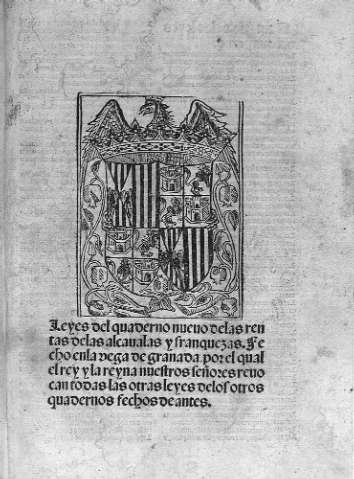 Leyes del quaderno nueuo delas ren
tas delas alcaualas y franquezas. Fe
cho enla vega de granada. por el qual
el rey y la reyna nuestros señores reuo
can todas las otras leyes delos otros
quadernos fechos de antes.